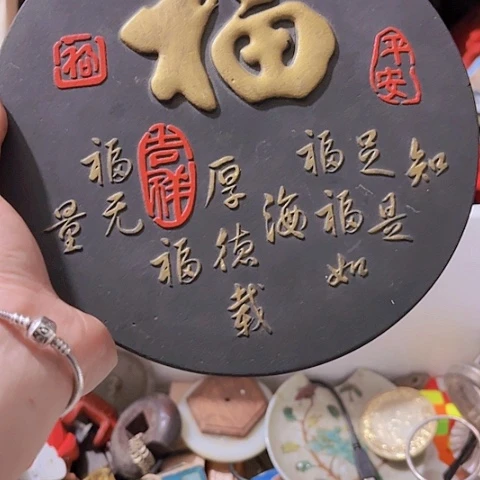 福
福
平安
吉祥
知
足是
福福如
海
厚德载
福
福无
量